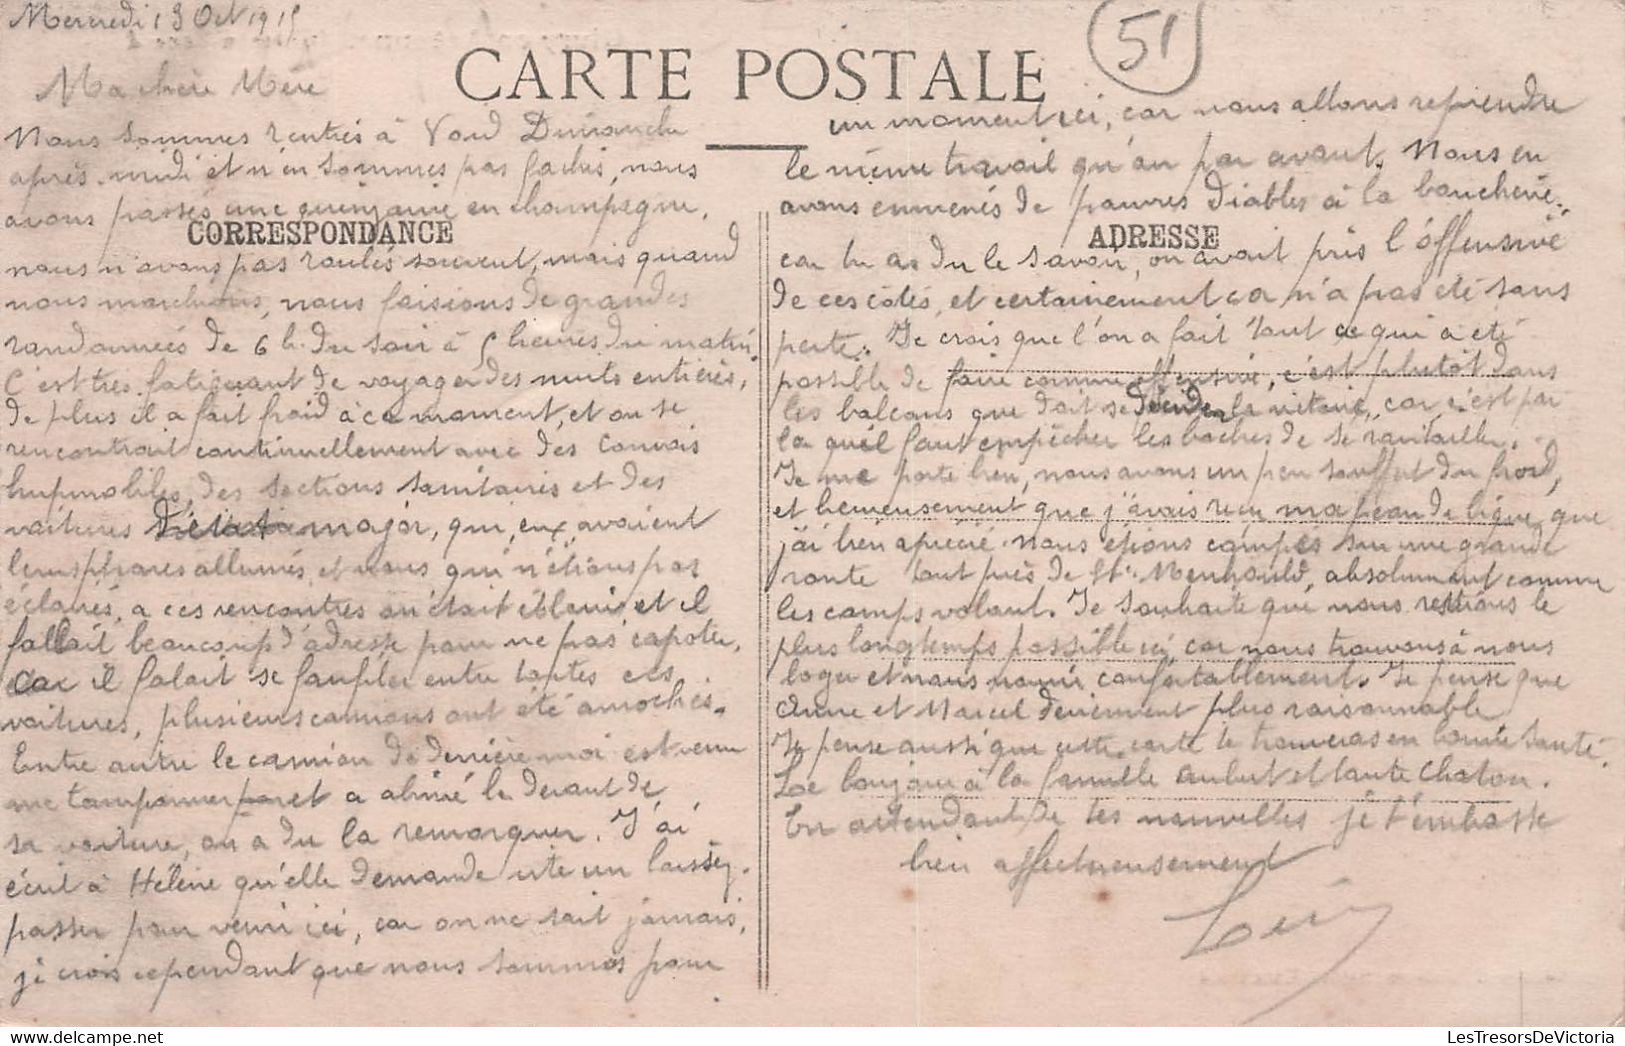 Mercredi 13 Oct 1915
Ma chère Mère
CARTE POSTALE
51
Nous sommes rentrés à Void Dimanche
après-midi et n'en sommes pas fachés, nous
avons passés une quinzaine en champagne,
CORRESPONDANCE
nous n'avons pas roulés souvent, mais quand
nous marchions, nous faisions de grandes
randonnées de 6 h. du soir à 5 heures du matin.
C'est tres fatiguant de voyager des nuits entières,
de plus il a fait froid à ce moment, et on se
rencontrait continuellement avec des convois
hupmobiles, des sections sanitaires et des
voitures d'état major, qui, eux, avaient
leurs phares allumés, et nous qui n'étions pas
éclairés, a ces rencontres on était ébloui et il
fallait beaucoup d'adresse pour ne pas capoter,
car il falait se faufiler entre toutes ces
voitures, plusieurs camions ont été amochés.
Entre autre le camion de derrière moi est venu
me tamponner et a abimé le devant de
sa voiture, on a du la remorquer. J'ai
écrit à Hélène qu'elle demande vite un laissez-
passer pour venir ici, car on ne sait jamais,
je crois cependant que nous sommes pour
un moment ici, car nous allons reprendre
le même travail qu'au par avant. Nous en
avons emmenés de pauvres diables à la boucherie.
ADRESSE
car tu as du le savoir, on avait pris l'offensive
de ces côtés, et certainement ça n'a pas été sans
perte. Je crois que l'on a fait tout ce qui a été
possible de faire comme offensive, c'est plutôt dans
les balcans que doit se décider la victoire, car c'est par
la qu'il faut empêcher les boches de se ravitailler.
Je me porte bien, nous avons un peu souffert du froid,
et heureusement que j'avais reçu ma peau de bique que
j'ai bien aprécié. Nous étions campés sur une grande
route tout près de Ste Menhould, absolument comme
les camps volant. Je souhaite que nous restions le
plus longtemps possible ici, car nous trouvons à nous
loger et nous nourir confortablement. Je pense que
Anne et Marcel deviennent plus raisonnable
Je pense aussi que cette carte te trouveras en bonne santé.
Le bonjour à la famille Aubert et tante Chaton.
En attendant de tes nouvelles je t'embasse
bien affectueusement
LesTresorsDeVictoria